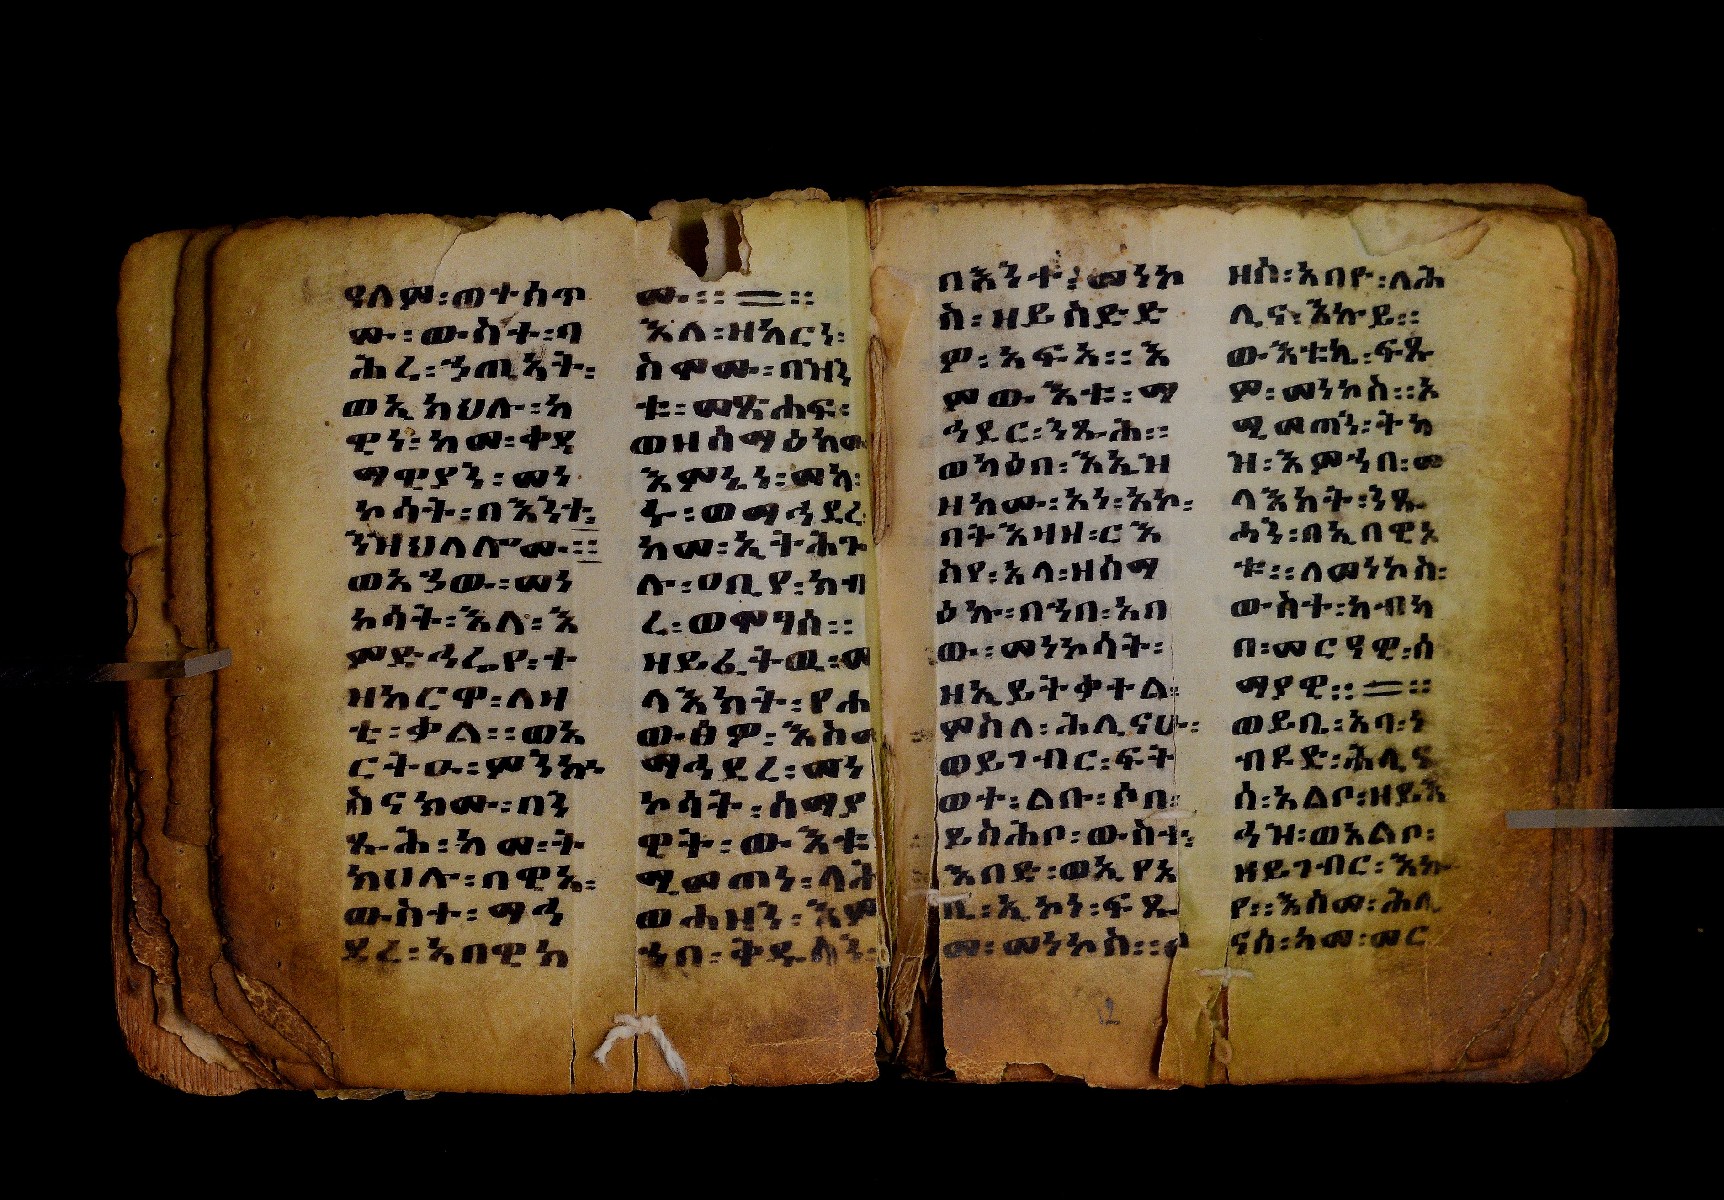 ዓለም፡ወተሰጥ
ሙ፡ውስተ፡ባ
ሕረ፡ኀጢአት፡
ወኢክህሉ፡ከ
ዊነ፡ከመ፡ቀዳ
ማዊያን፡መነ
ኮሳት፡በእንተ፡
ንዝህላሎሙ።
ወእንው፡መነ
ኮሳት፡እለ፡እ
ምድኅሬየ፡ተ
ዝክርዋ፡ለዛ
ቲ፡ቃል።ወእ
ርትዑ፡ምንኵ
ስናክሙ፡በን
ጹሕ፡ከመ፡ት
ክሀሉ፡በዊአ፡
ውስተ፡ማኅ
ደረ፡አበዊክ
ሙ።=።
እለ፡ዘከርነ፡
ስሞሙ፡በዝን
ቱ፡መጽሐፍ፡
ወዘሰማዕክሙ
እምኔነ፡መካ፡
ኑ፡ወማኅደረ፡
ከመ፡ኢትሕጉ
ሉ፡ዐቢየ፡ክብ
ረ፡ወሞገሰ።
ዘይፈትዉ፡መ
ላእክት፡የሐ
ውፅዎ፡እስመ
ማኅደረ፡መነ
ኮሳት፡ሰማያ
ዊት፡ውእቱ
ሚመጠነ፡ላሕ
ወሐዘን፡እም
ኀበ፡ትዴለን፡
በእንተ፡መነኮ
ስ፡ዘይስድድ
ዎ፡አፍአ።እ
ምውእቱ፡ማ
ኅደር፡ንጹሕ።
ወካዕበ፡እኤዝ
ዘክሙ፡አነ፡አኮ፡
በትእዛዘ፡ርእ
ስየ፡አላ፡ዘሰማ
ዕኩ፡በኀበ፡አበ
ው፡መነኮሳት፡
ዘኢይትቃተል፡
ምስለ፡ሕሊናሁ፡
ወይገብር፡ፍት
ወተ፡ልቡ፡ሶበ፡
ይስሕቦ፡ውስተ፡
እበድ፡ወኢየአ
ቢ፡ኢኮነ፡ፍጹ
መ፡መነኮስ።ወ
ዘሰ፡አበየ፡ለሕ
ሊና፡እኩይ።
ውእቱኬ፡ፍጹ
ም፡መነኮስ።እ
ሚመጠነ፡ትካ
ዝ፡እምኀበ፡መ
ላእክት፡ንጹ
ሓን፡በኢበዊአ
ቱ።ለመነኮስ፡
ውስተ፡ከብካ
በ፡መርዓዊ፡ሰ
ማያዊ።=።
ወይቤ፡አባ፡ነ
ብዩድ፡ሕሊና
ሰ፡አልቦ፡ዘይእ
ኅዝ፡ወአልቦ፡
ዘይገብር፡እኩ
የ።እስመ፡ሕሊ
ናሰ፡ከመ፡መር